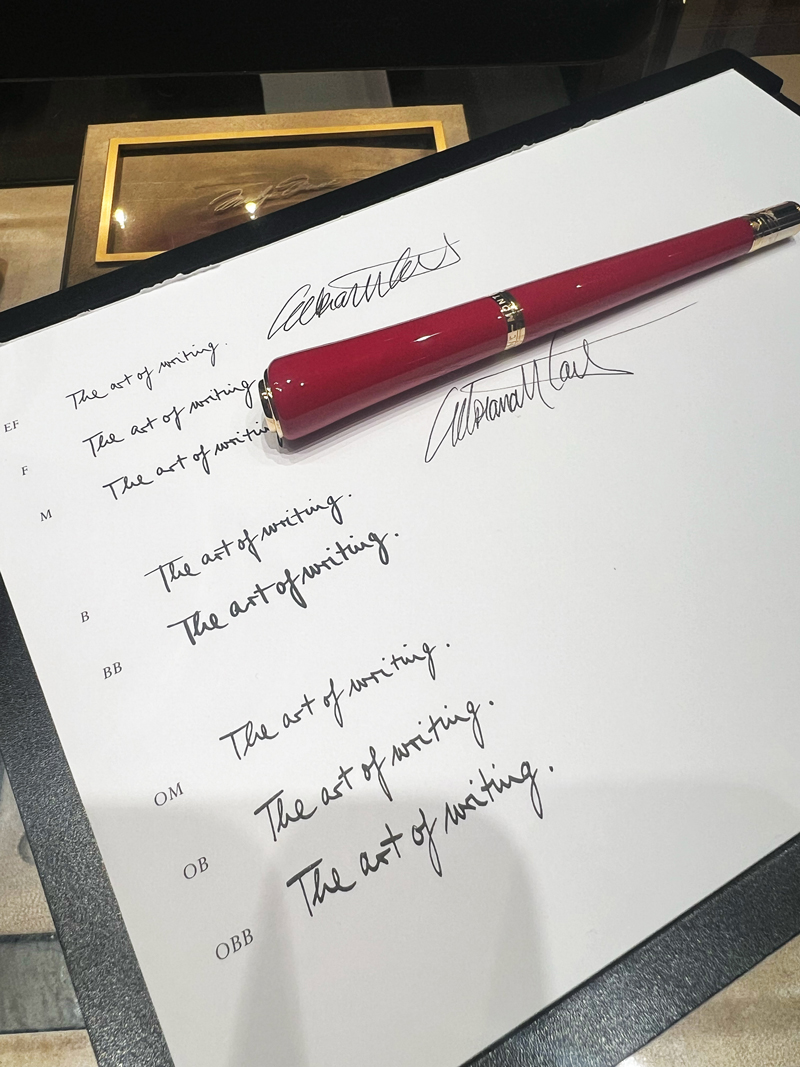 EF The art of writing.
F The art of writing
M The art of writin
B The art of writing.
BB The art of writing.
OM The art of writing.
OB The art of writing.
OBB The art of writing.
MONT